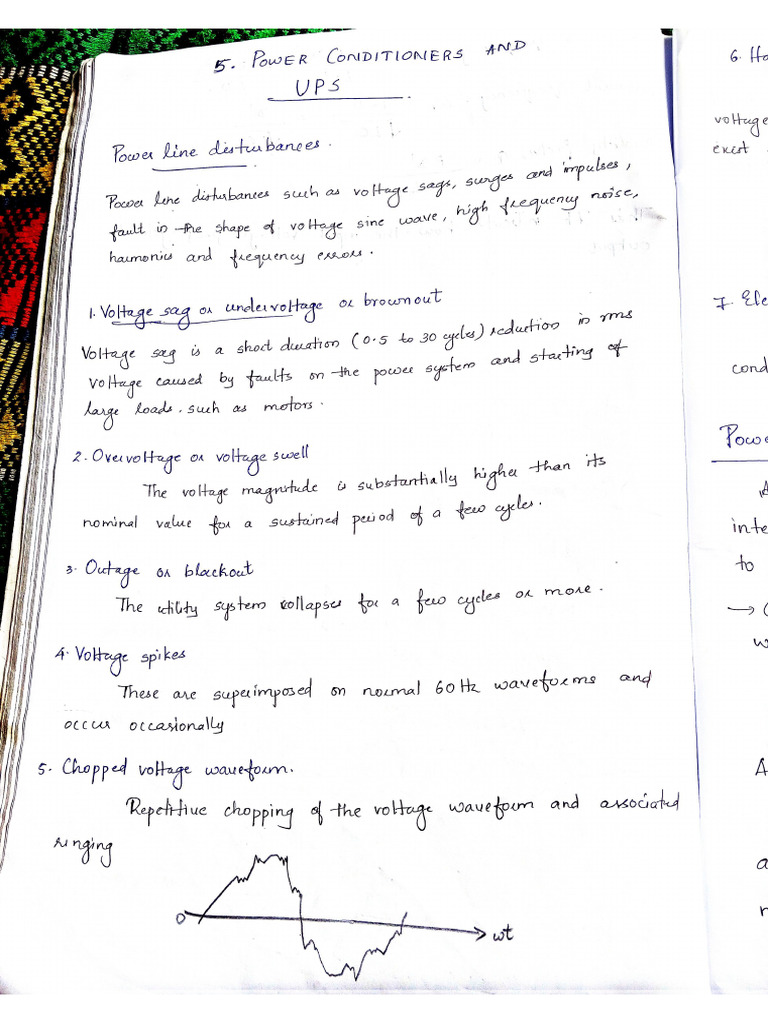 5. POWER CONDITIONERS AND
UPS
Power line disturbances.
Power line disturbances such as voltage sags, surges and impulses,
fault in the shape of voltage sine wave, high frequency noise,
harmonics and frequency errors.
1. Voltage sag or undervoltage or brownout
Voltage sag is a short duration (0.5 to 30 cycles) reduction in rms
voltage caused by faults on the power system and starting of
large loads. such as motors.
2. Overvoltage or voltage swell
The voltage magnitude is substantially higher than its
nominal value for a sustained period of a few cycles.
3. Outage or blackout
The utility system collapses for a few cycles or more.
4. Voltage spikes
These are superimposed on normal 60 Hz waveforms and
occur occasionally
5. Chopped voltage waveform.
Repetitive chopping of the voltage waveform and associated
ringing
0
wt
6. Ha
voltage
exist
7. Ele
cond
Powe
inte
to
→
w
A
a